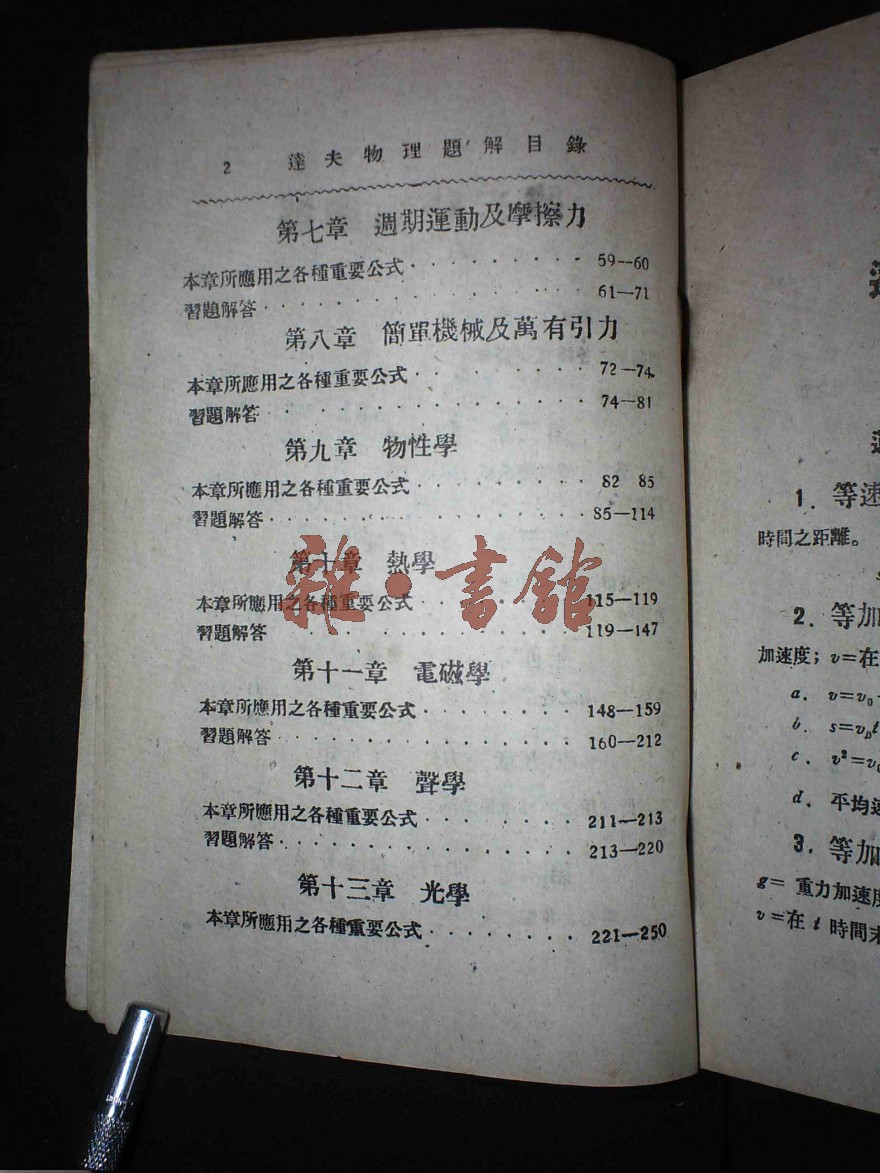 2 達夫物理題解目錄
第七章 週期運動及摩擦力
本章所應用之各種重要公式 · · · · · · · · · 59--60
習題解答 · · · · · · · · · · · · · · 61—71
第八章 簡單機械及萬有引力
本章所應用之各種重要公式 · · · · · · · · · 72—74
習題解答 · · · · · · · · · · · · · · 74—81
第九章 物性學
本章所應用之各種重要公式 · · · · · · · · · 82 85
習題解答 · · · · · · · · · · · · · · 85—114
第十章 熱學
本章所應用之各種重要公式 · · · · · · · · · 115—119
習題解答 · · · · · · · · · · · · · · 119—147
第十一章 電磁學
本章所應用之各種重要公式 · · · · · · · · · 148—159
習題解答 · · · · · · · · · · · · · · 160—212
第十二章 聲學
本章所應用之各種重要公式 · · · · · · · · · 211—213
習題解答 · · · · · · · · · · · · · · 213—220
第十三章 光學
本章所應用之各種重要公式 · · · · · · · · · 221—250
雜·書館
1. 等速
時間之距離。
s
2. 等加
加速度；v=在
a. v=v₀
b. s=v₀t
c. v²=v₀
d. 平均速
3. 等加
g= 重力加速度
v=在 t 時間末